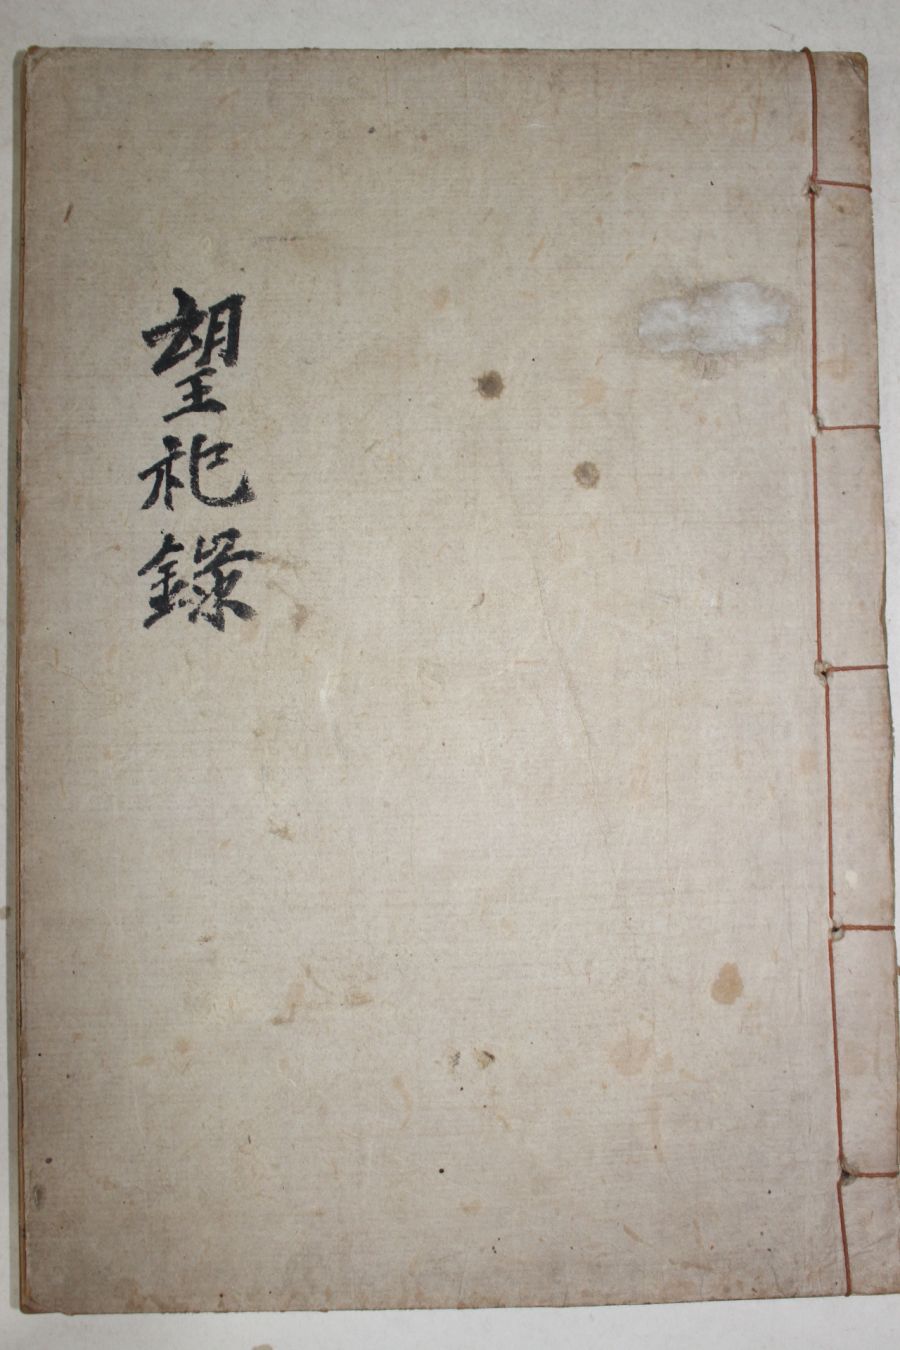 望祀錄